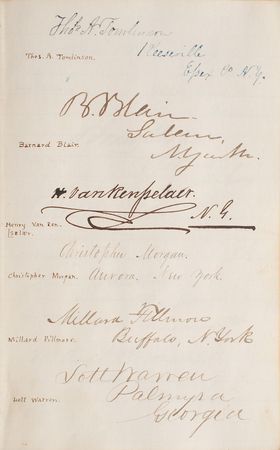 Thos. A. Tomlinson
Keeseville
Thos. A. Tomlinson.
Essex Co. N.Y.
B. Blair
Salem,
Barnard Blair.
H. Van Rensselaer.
N.Y.
Henry Van Ren
sselær.
Christopher Morgan.
Christopher Morgan.
Aurora. New York.
Millard Fillmore
Millard Fillmore.
Buffalo, N. York
Lott Warren
Lott Warren.
Palmyra
Georgia